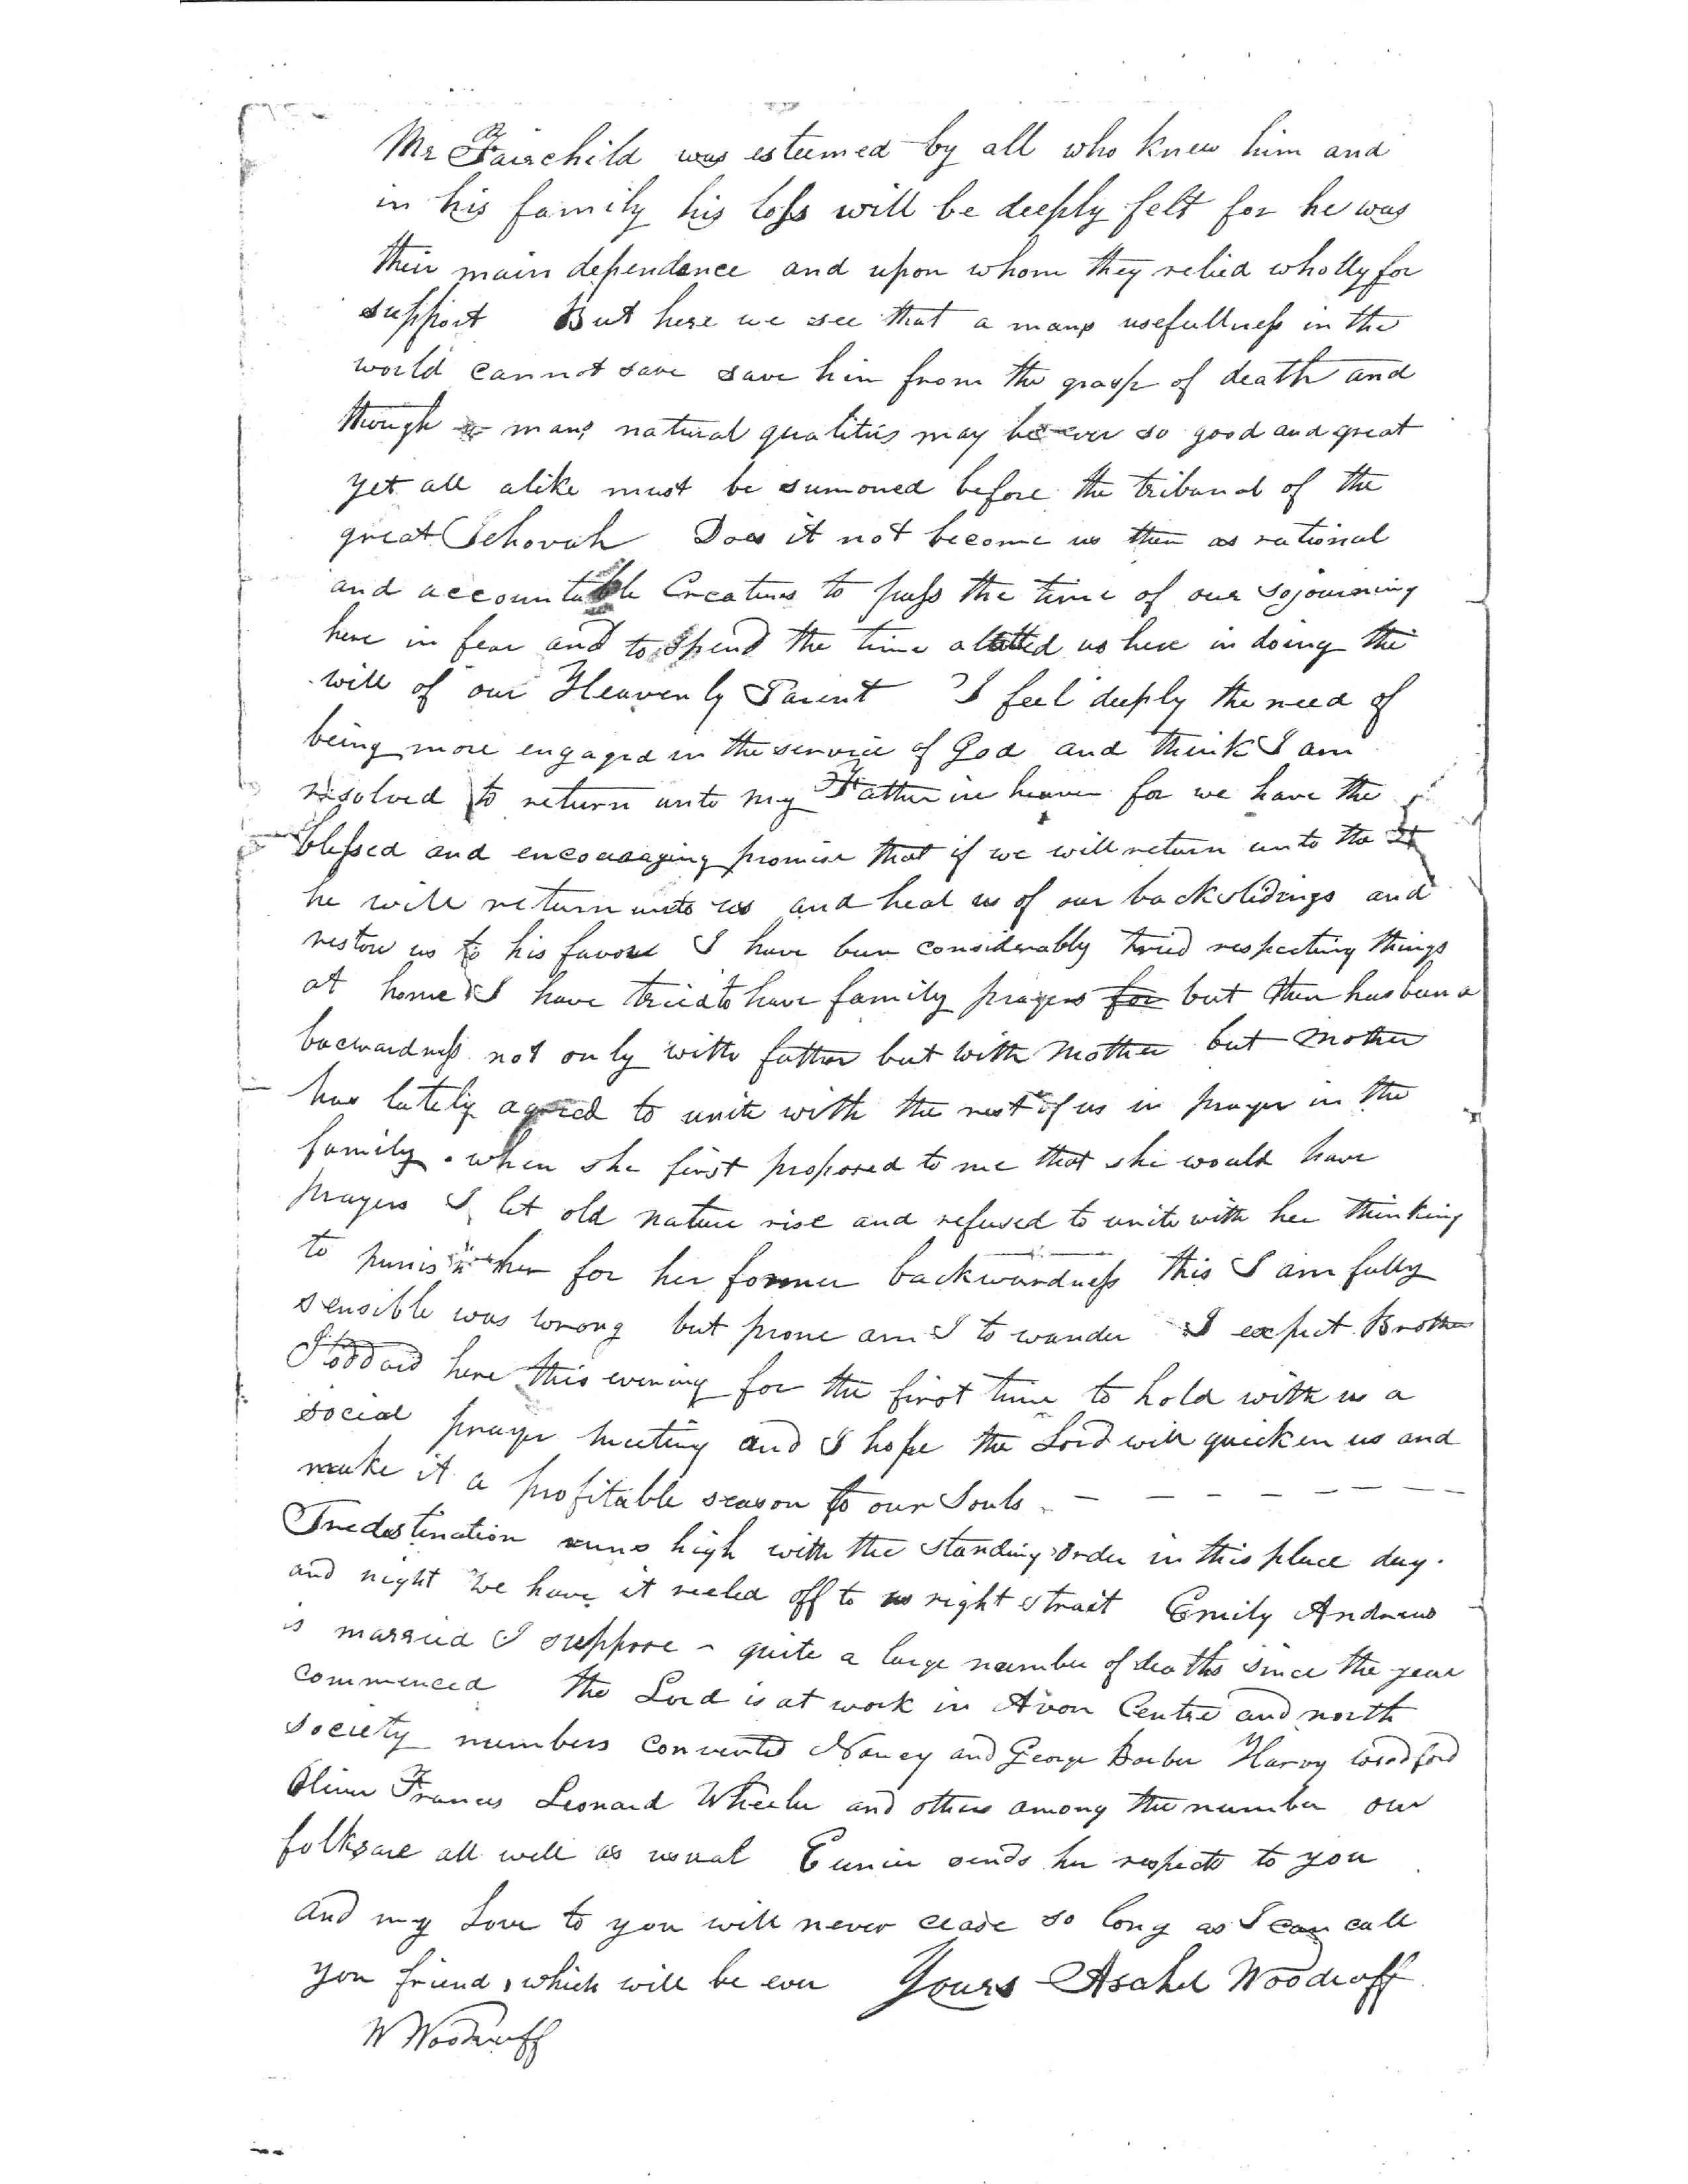 Mr Fairchild was esteemed by all who knew him and
in his family his loss will be deeply felt for he was
their main dependence and upon whom they relied wholly for
support But here we see that a mans usefullness in the
world cannot save save him from the grasp of death and
though a mans natural qualities may be ever so good and great
yet all alike must be sumoned before the tribunal of the
great Jehovah Does it not become us then as rational
and accountable Creatures to pass the time of our sojourning
here in fear and to spend the time alotted us here in doing the
will of our Heavenly Parent I feel deeply the need of
being more engaged in the service of God and think I am
resolved to return unto my Father in heaven for we have the
blessed and encouraging promise that if we will return unto the
he will return unto us and heal us of our backslidings and
restore us to his favour I have been considerably tried respecting things
at home I have tried to have family prayers for but there has been a
bacwardness not only with father but with Mother but Mother
has lately agreed to unite with the rest of us in prayer in the
family. when she first proposed to me that she would have
prayers I let old nature rise and refused to unite with her thinking
to punish her for her former backwardness this I am fully
sensible was wrong but prone am I to wander I expect Brother
Stoddard here this evening for the first time to hold with us a
social prayer meeting and I hope the Lord will quicken us and
make it a profitable season to our Souls - - - - - - - -
Predestination runs high with the standing order in this place day
and night We have it reeled off to us right strait Emily Andrews
is married I suppose - quite a large number of deaths since the year
commenced the Lord is at work in Avon Centre and north
society numbers converted Nancy and George Barber Harvy Woodford
Oliver Francis Leonard Wheeler and others among the number our
folks are all well as usual Eunice sends her respects to you
and my Love to you will never cease so long as I can call
you friend, which will be ever Yours Asahel Woodruff
W Woodruff